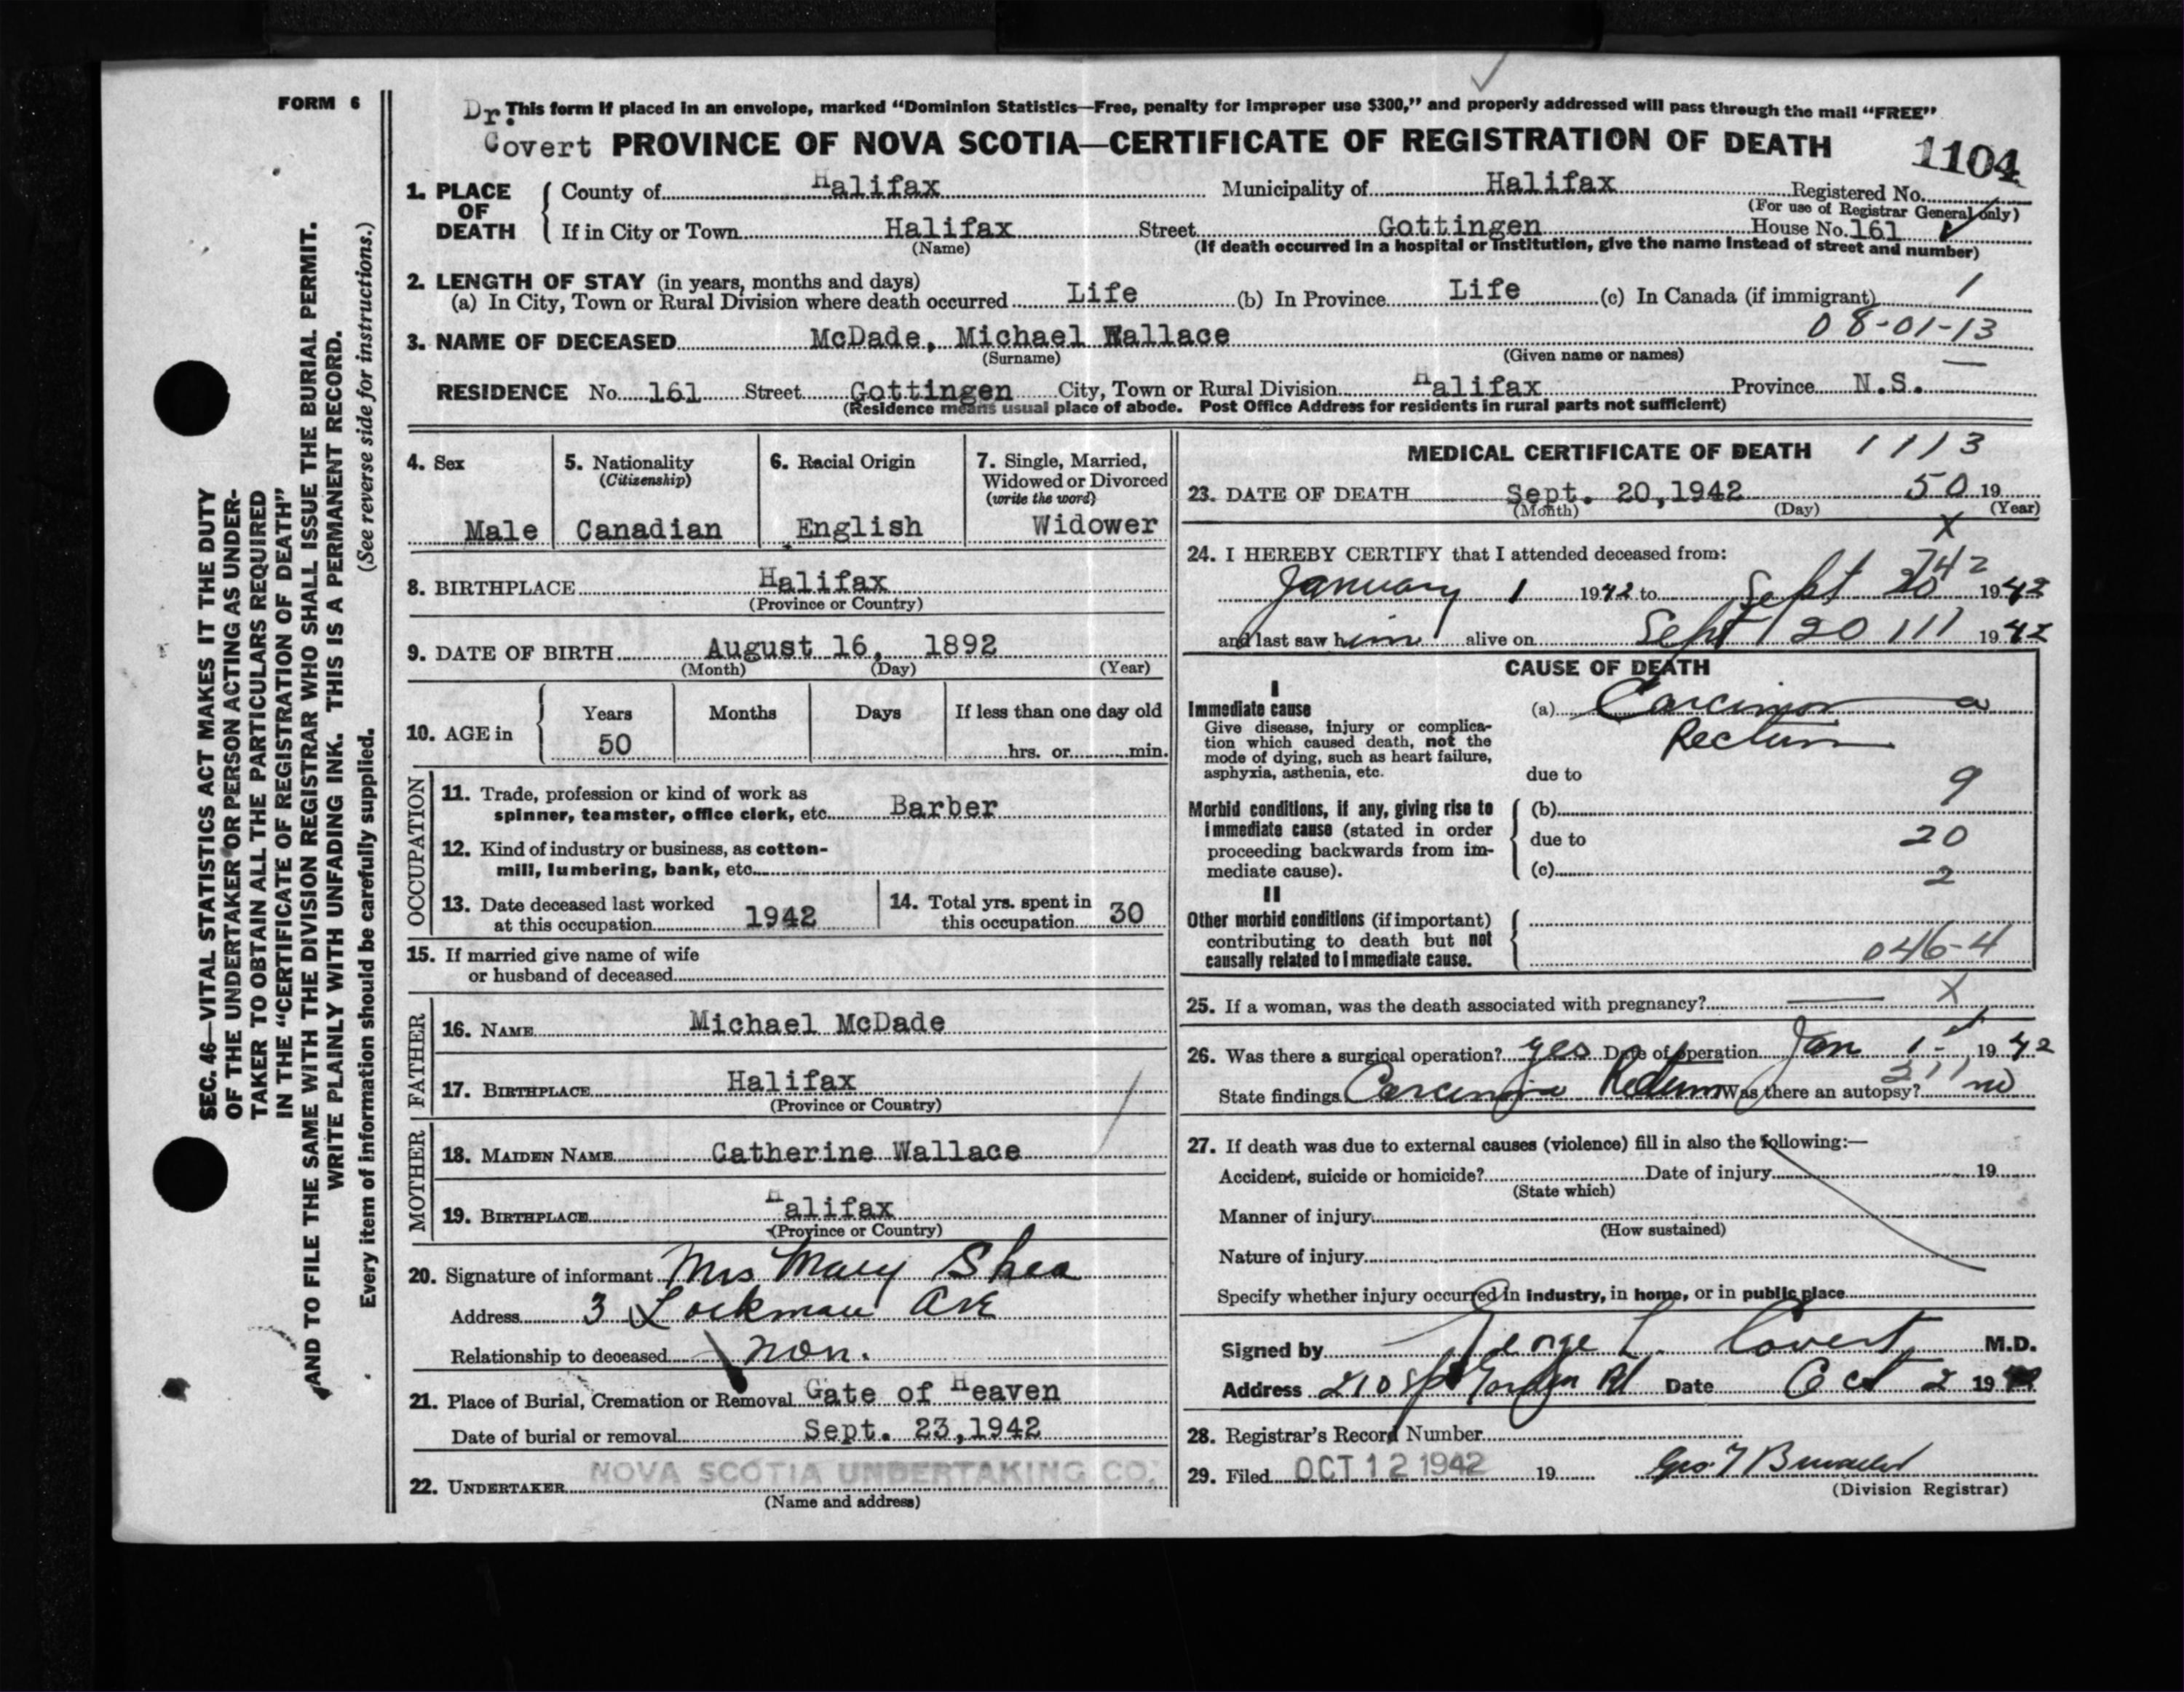 FORM 6
Dr. This form if placed in an envelope, marked "Dominion Statistics—Free, penalty for improper use $300," and properly addressed will pass through the mail "FREE"
Covert PROVINCE OF NOVA SCOTIA—CERTIFICATE OF REGISTRATION OF DEATH 1104
1. PLACE OF DEATH County of Halifax Municipality of Halifax Registered No.
(For use of Registrar General only)
If in City or Town Halifax Street Gottingen House No. 161
(Name) (If death occurred in a hospital or institution, give the name instead of street and number)
2. LENGTH OF STAY (in years, months and days)
(a) In City, Town or Rural Division where death occurred Life (b) In Province Life (c) In Canada (if immigrant) 1
08-01-13
3. NAME OF DECEASED McDade, Michael Wallace
(Surname) (Given name or names)
RESIDENCE No. 161 Street Gottingen City, Town or Rural Division Halifax Province N.S.
(Residence means usual place of abode. Post Office Address for residents in rural parts not sufficient)
4. Sex 5. Nationality 6. Racial Origin 7. Single, Married,
(Citizenship) Widowed or Divorced
(write the word)
Male Canadian English Widower
8. BIRTHPLACE Halifax
(Province or Country)
9. DATE OF BIRTH August 16, 1892
(Month) (Day) (Year)
10. AGE in Years Months Days If less than one day old
50 hrs. or min.
OCCUPATION
11. Trade, profession or kind of work as
spinner, teamster, office clerk, etc. Barber
12. Kind of industry or business, as cotton-
mill, lumbering, bank, etc.
13. Date deceased last worked 14. Total yrs. spent in
at this occupation 1942 this occupation 30
15. If married give name of wife
or husband of deceased
FATHER
16. NAME Michael McDade
17. BIRTHPLACE Halifax
(Province or Country)
MOTHER
18. MAIDEN NAME Catherine Wallace
19. BIRTHPLACE Halifax
(Province or Country)
20. Signature of informant Mrs Mary Shea
Address 3 Lockman Ave
Relationship to deceased non.
21. Place of Burial, Cremation or Removal Gate of Heaven
Date of burial or removal Sept. 23, 1942
22. UNDERTAKER NOVA SCOTIA UNDERTAKING CO.
(Name and address)
MEDICAL CERTIFICATE OF DEATH 1113
23. DATE OF DEATH Sept. 20, 1942 50 19
(Month) (Day) (Year)
X
24. I HEREBY CERTIFY that I attended deceased from:
742
January 1 1942 to Sept 20 1942
and last saw him alive on Sept 20 111 1942
CAUSE OF DEATH
I
Immediate cause (a) Carcinoma
Rectum
Give disease, injury or complica-
tion which caused death, not the
mode of dying, such as heart failure,
asphyxia, asthenia, etc. due to 9
Morbid conditions, if any, giving rise to (b)
immediate cause (stated in order due to 20
proceeding backwards from im-
mediate cause). (c) 2
II
Other morbid conditions (if important)
contributing to death but not
causally related to immediate cause. 046-4
25. If a woman, was the death associated with pregnancy? — X
26. Was there a surgical operation? yes Date of operation Jan 1st 1942
State findings Carcinoma Rectum Was there an autopsy? no
27. If death was due to external causes (violence) fill in also the following:—
Accident, suicide or homicide? Date of injury 19
(State which)
Manner of injury
(How sustained)
Nature of injury
Specify whether injury occurred in industry, in home, or in public place
Signed by George L. Covert M.D.
Address 210 Date Oct 2 19
28. Registrar's Record Number
29. Filed OCT 12 1942 19
(Division Registrar)
SEC. 46—VITAL STATISTICS ACT MAKES IT THE DUTY
OF THE UNDERTAKER OR PERSON ACTING AS UNDER-
TAKER TO OBTAIN ALL THE PARTICULARS REQUIRED
IN THE "CERTIFICATE OF REGISTRATION OF DEATH"
AND TO FILE THE SAME WITH THE DIVISION REGISTRAR WHO SHALL ISSUE THE BURIAL PERMIT.
WRITE PLAINLY WITH UNFADING INK. THIS IS A PERMANENT RECORD.
Every item of information should be carefully supplied. (See reverse side for instructions.)